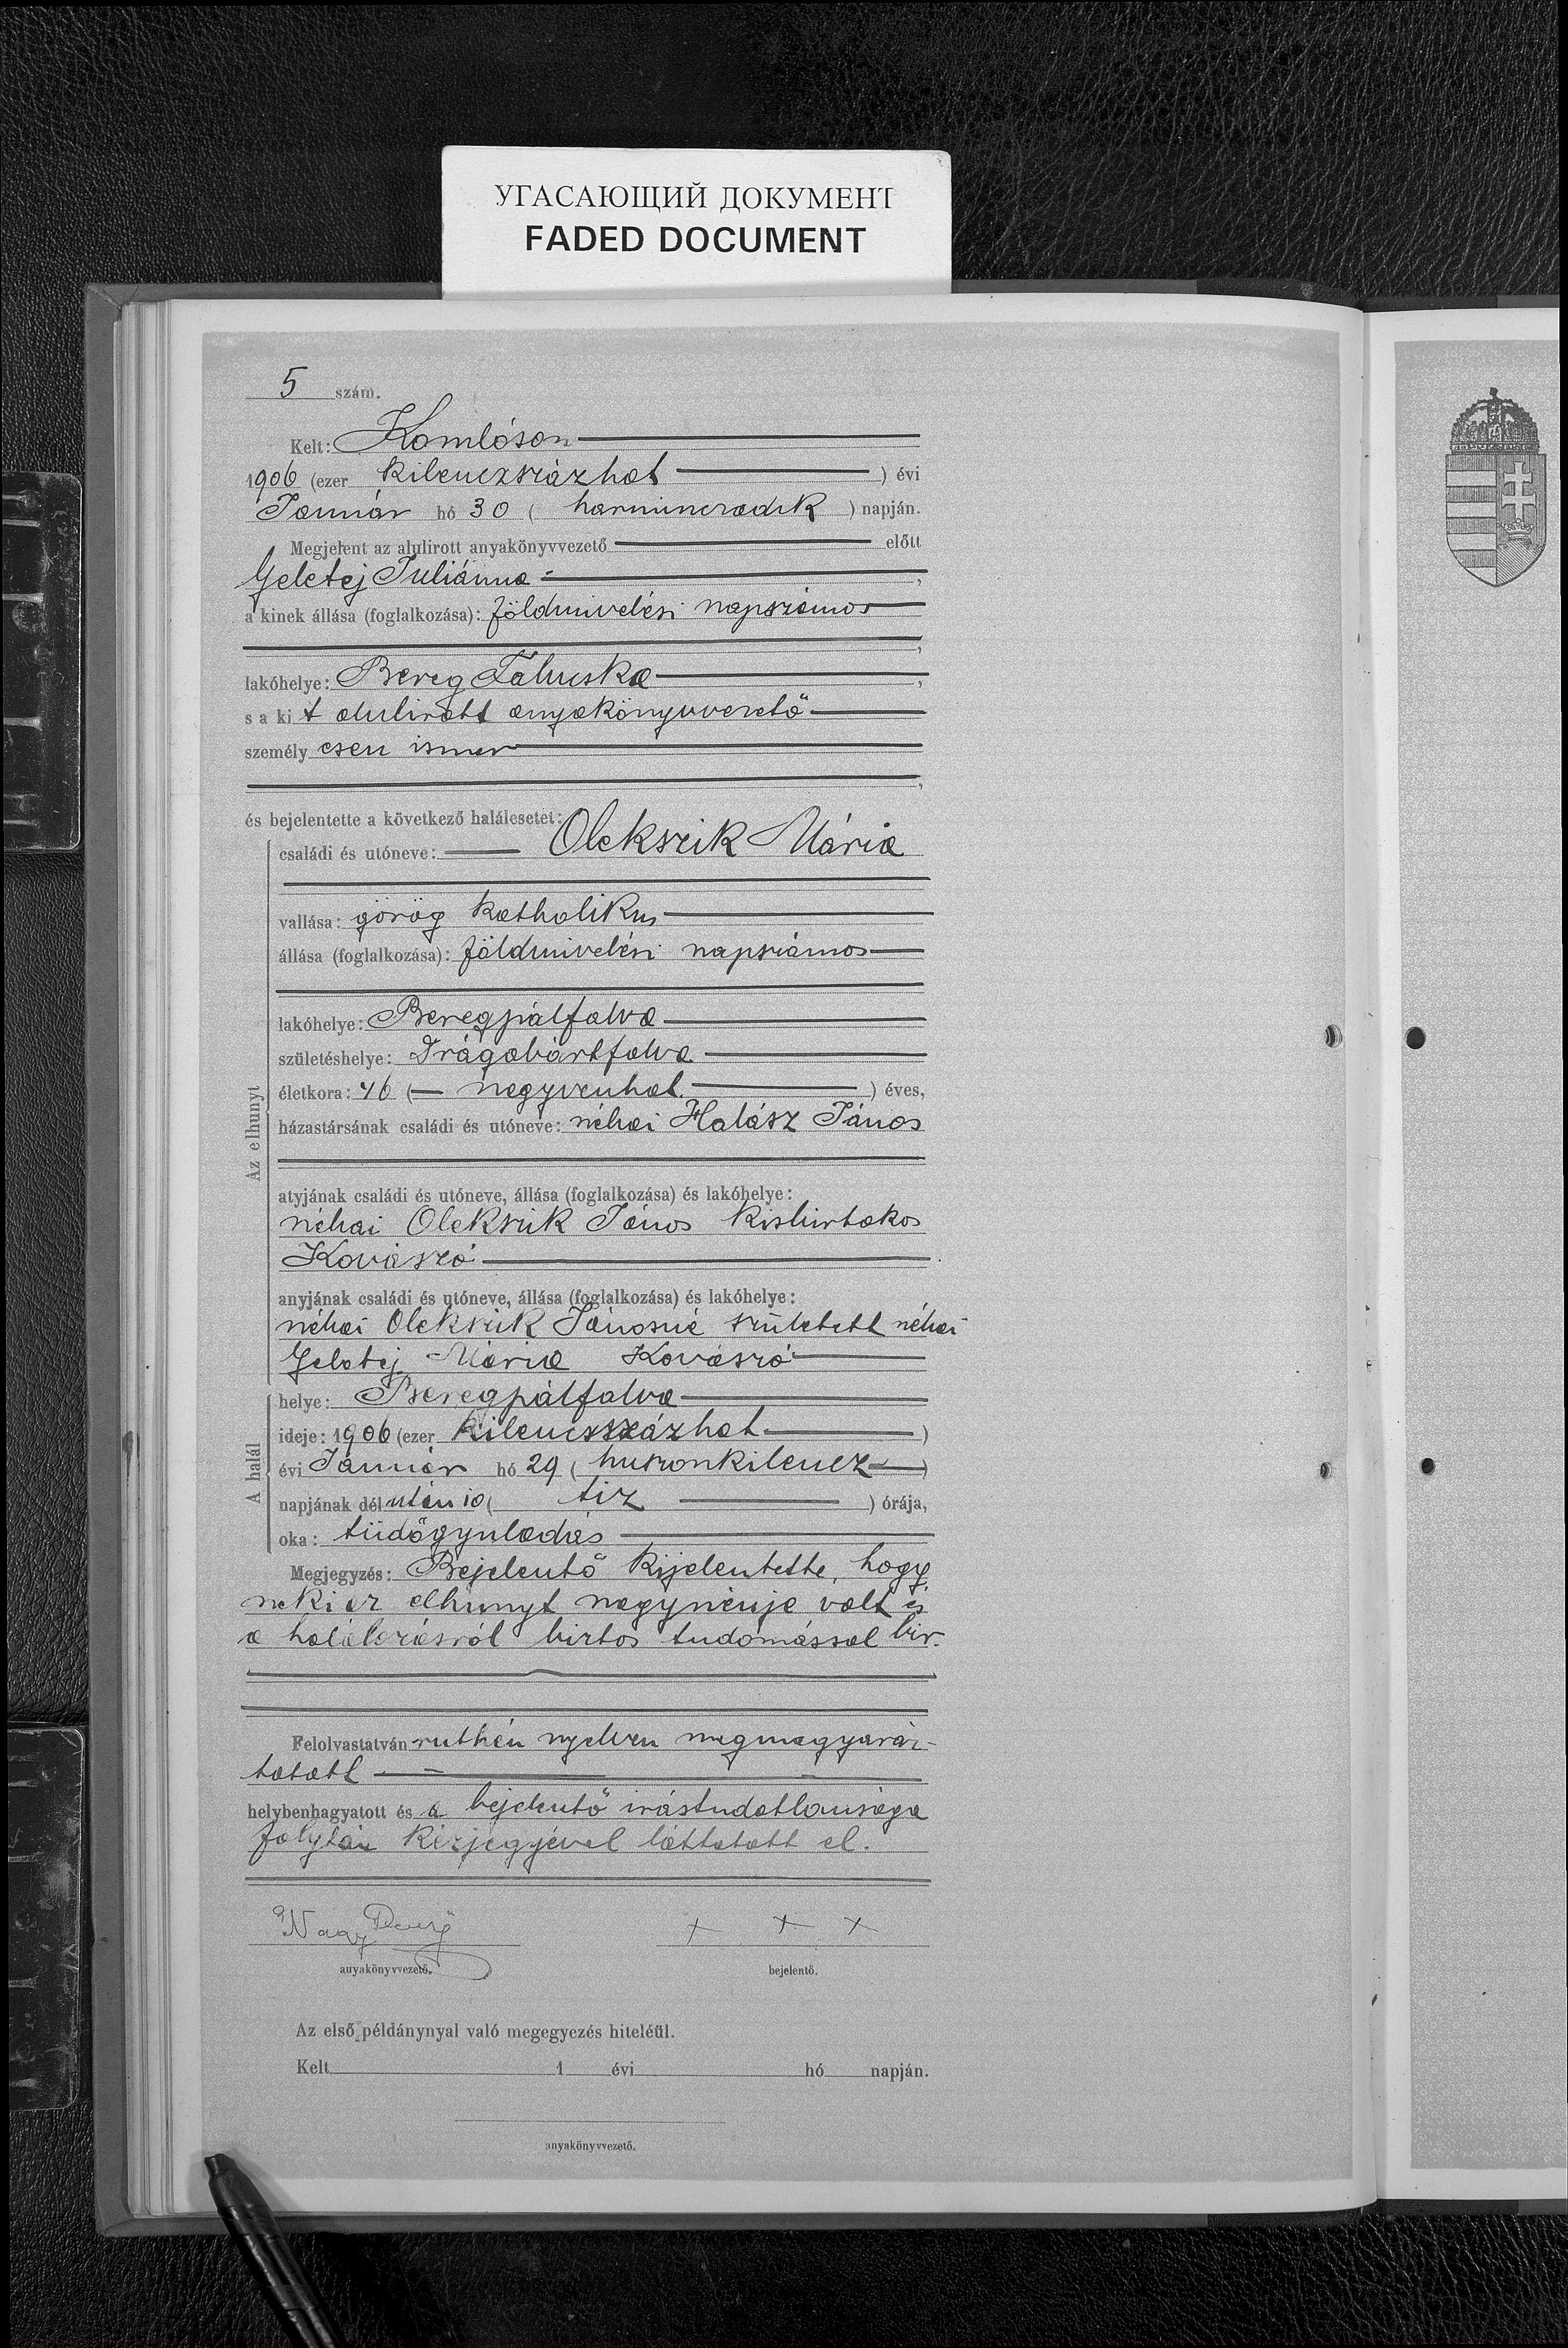 УГАСАЮЩИЙ ДОКУМЕНТ
FADED DOCUMENT
5 szám.
Kelt: Komlóson
1906 (ezer kilenczszázhat ) évi
Január hó 30 ( harminczadik ) napján.
Megjelent az alulirott anyakönyvvezető előtt
Geletej Juliánna ,
a kinek állása (foglalkozása): földmivelési napszámos
,
lakóhelye: Bereg ,
s a ki t alulirott anyakönyvvezető
személy esen ismer
,
és bejelentette a következő halálesetet:
családi és utóneve: Olekszik Mária
vallása: görög katholikus
állása (foglalkozása): földmivelési napszámos
Az elhunyt
lakóhelye: Beregpálfalva
születéshelye: Drágabártfalva
életkora: 46 ( negyvenhat ) éves,
házastársának családi és utóneve: néhai Halász János
atyjának családi és utóneve, állása (foglalkozása) és lakóhelye:
néhai Olekszik János kisbirtokos
Kovászó .
anyjának családi és utóneve, állása (foglalkozása) és lakóhelye:
néhai Olekszik Jánosné született néhai
Geletej Mária Kovászó
A halál
helye: Beregpálfalva
ideje: 1906 (ezer kilencszázhat )
évi Január hó 29 ( huszonkilencz )
napjának dél után 10 ( tiz ) órája,
oka: tüdőgyuladás
Megjegyzés: Bejelentő kijelentette, hogy
neki az elhunyt nagynénje volt és
a halálozásról biztos tudomással bir.
Felolvastatván ruthén nyelven megmagyaráz-
tatott
helybenhagyatott és a bejelentő irástudatlansága
folytán kézjegyével láttatott el.
Nagy + + +
anyakönyvvezető. bejelentő.
Az első példánynyal való megegyezés hiteléül.
Kelt 1 évi hó napján.
anyakönyvvezető.